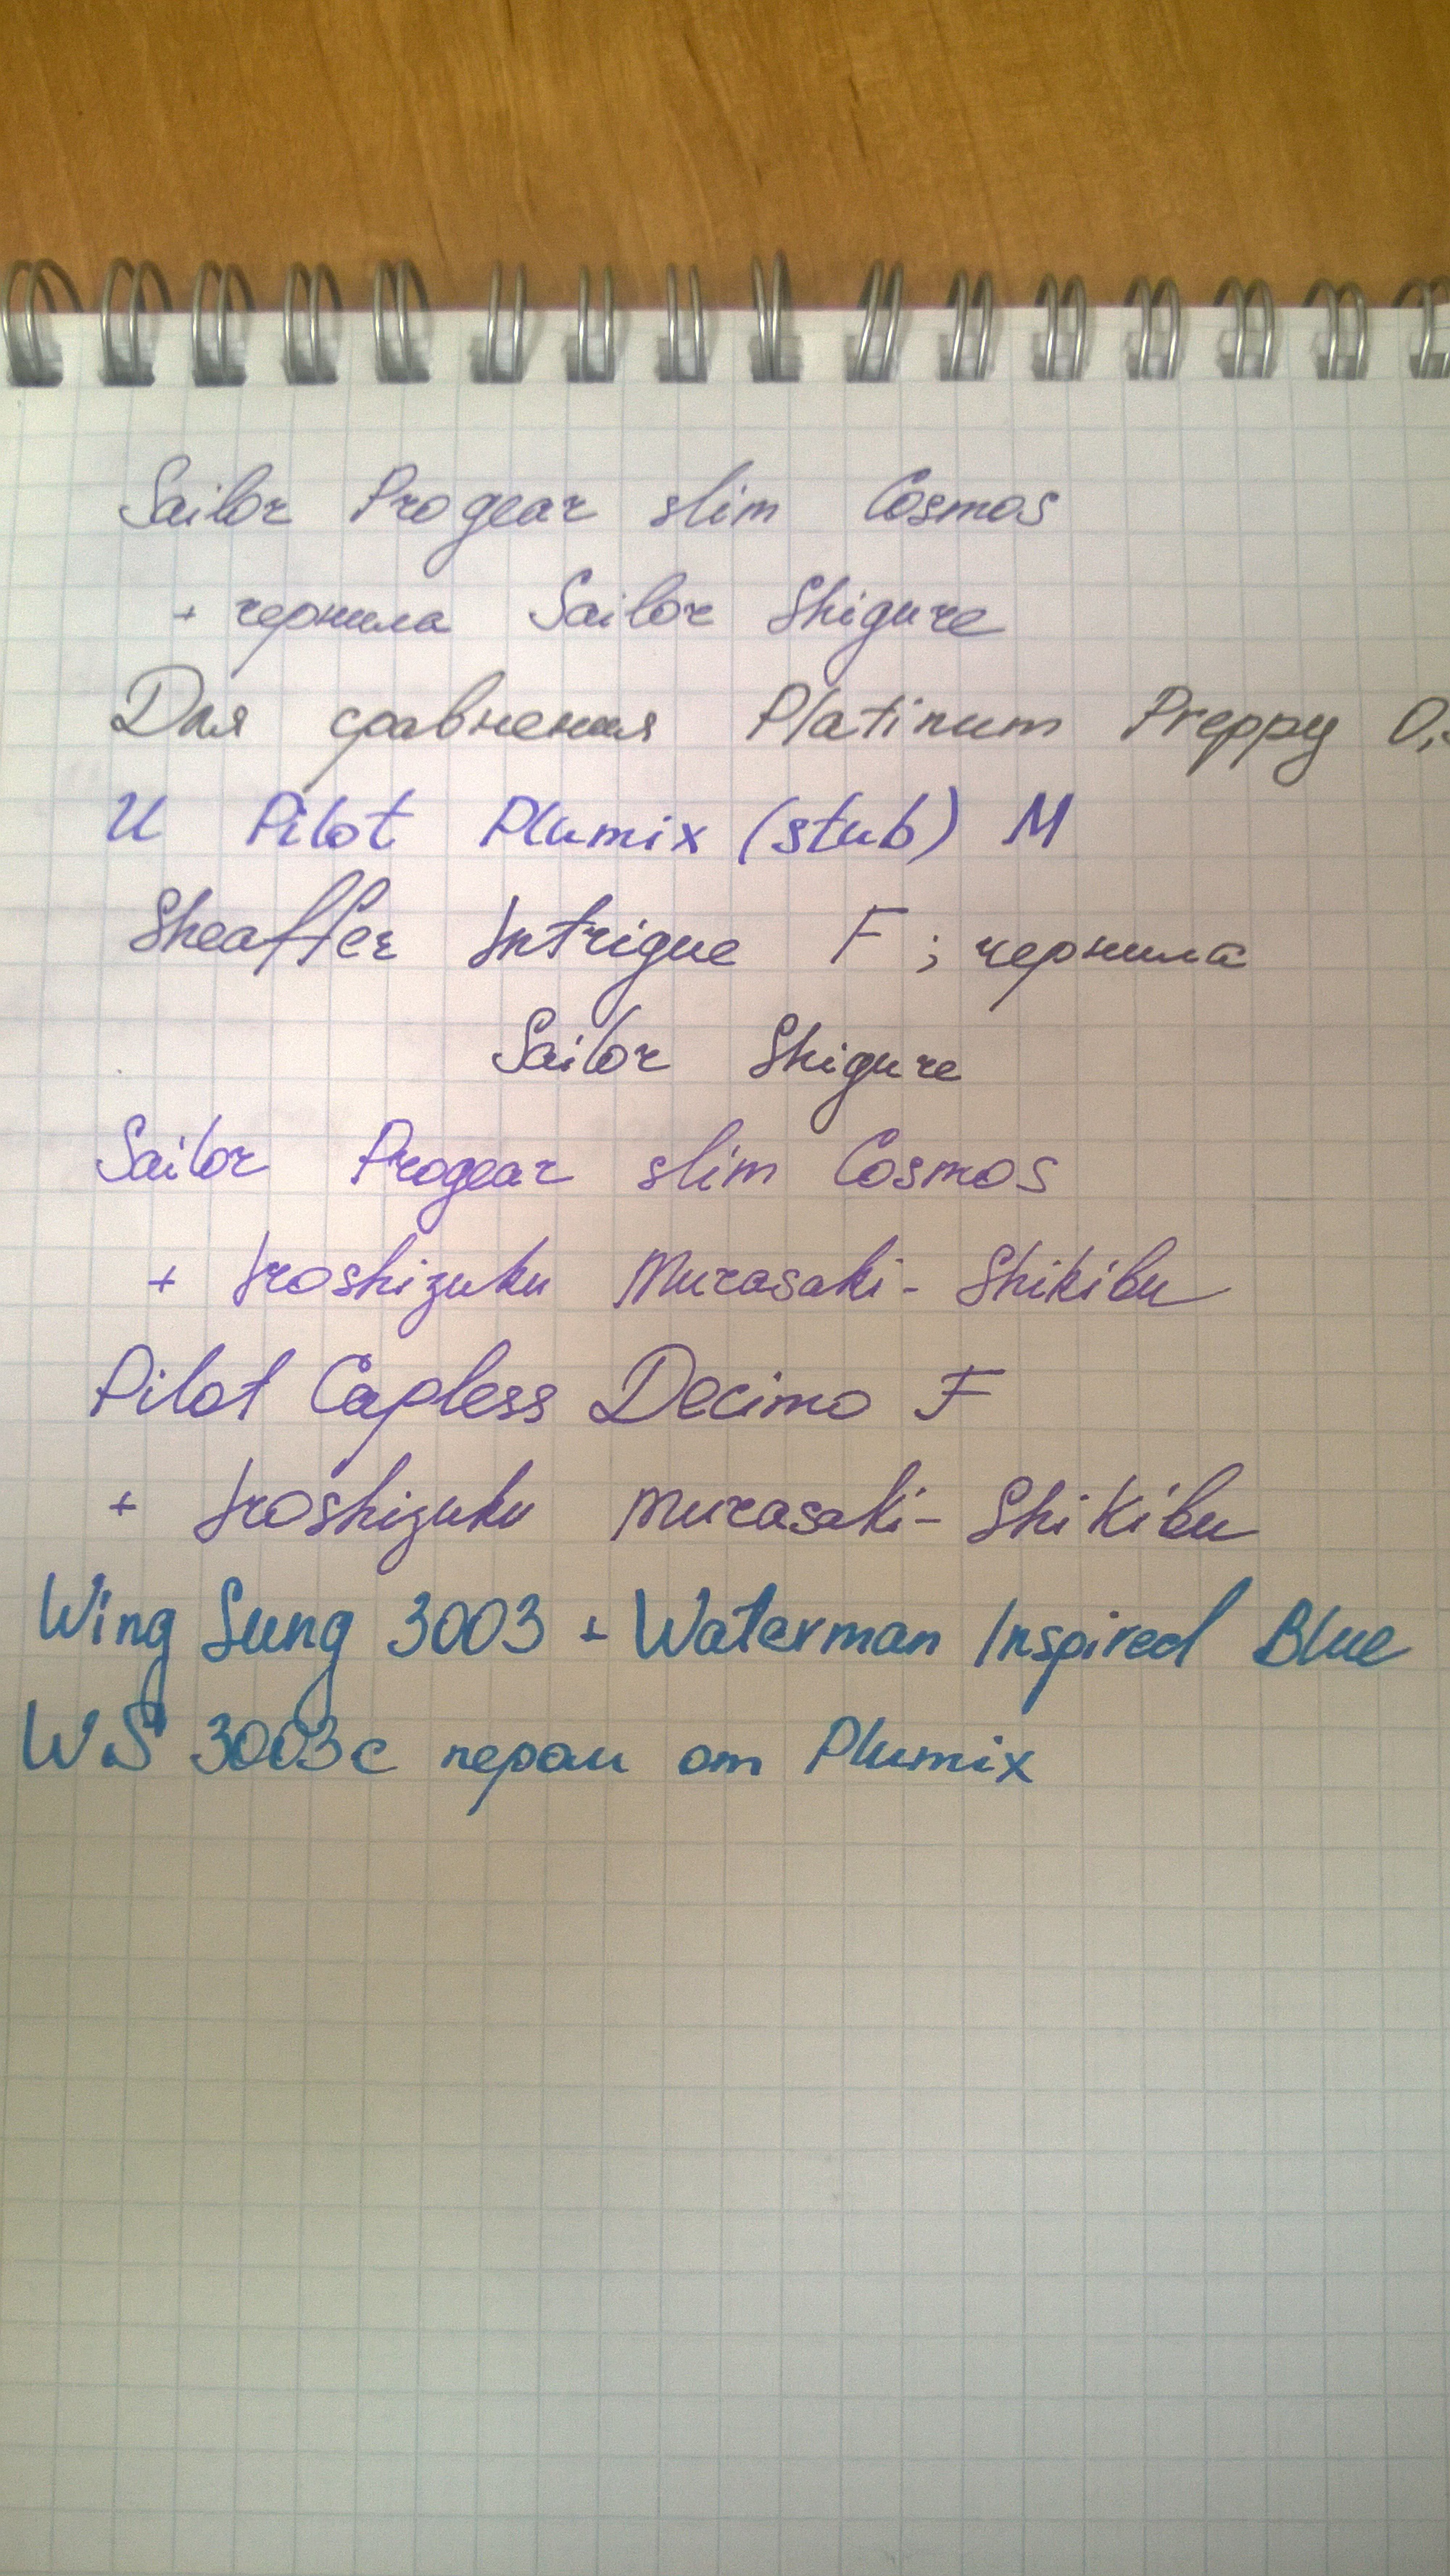 Sailor Progear slim Cosmos
+ чернила Sailor Shigure
Для сравнения Platinum Preppy 0,
И Pilot Plumix (stub) M
Sheaffer Intrigue F ; чернила
Sailor Shigure
Sailor Progear slim Cosmos
+ Iroshizuku Murasaki-Shikibu
Pilot Capless Decimo F
+ Iroshizuku Murasaki-Shikibu
Wing Sung 3003 + Waterman Inspired Blue
WS 3003 с пером от Plumix